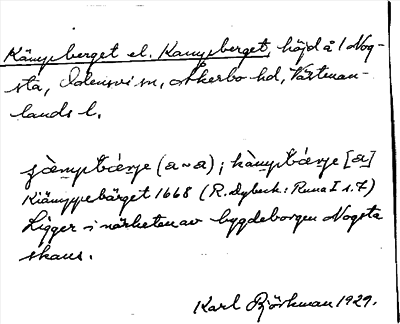 Kämpeberget el. Kampeberget, höjd å/Nog-
sta, Odensvi sn, Åkerbo hd, Västman-
lands l.
kämpebärje (a~a); kampebärje [a]
Kiämppebärget 1668 (R. Dybeck: Runa I s. 7)
Ligger i närheten av bygdeborgen Nogsta
skans.
Karl Björkman 1929.